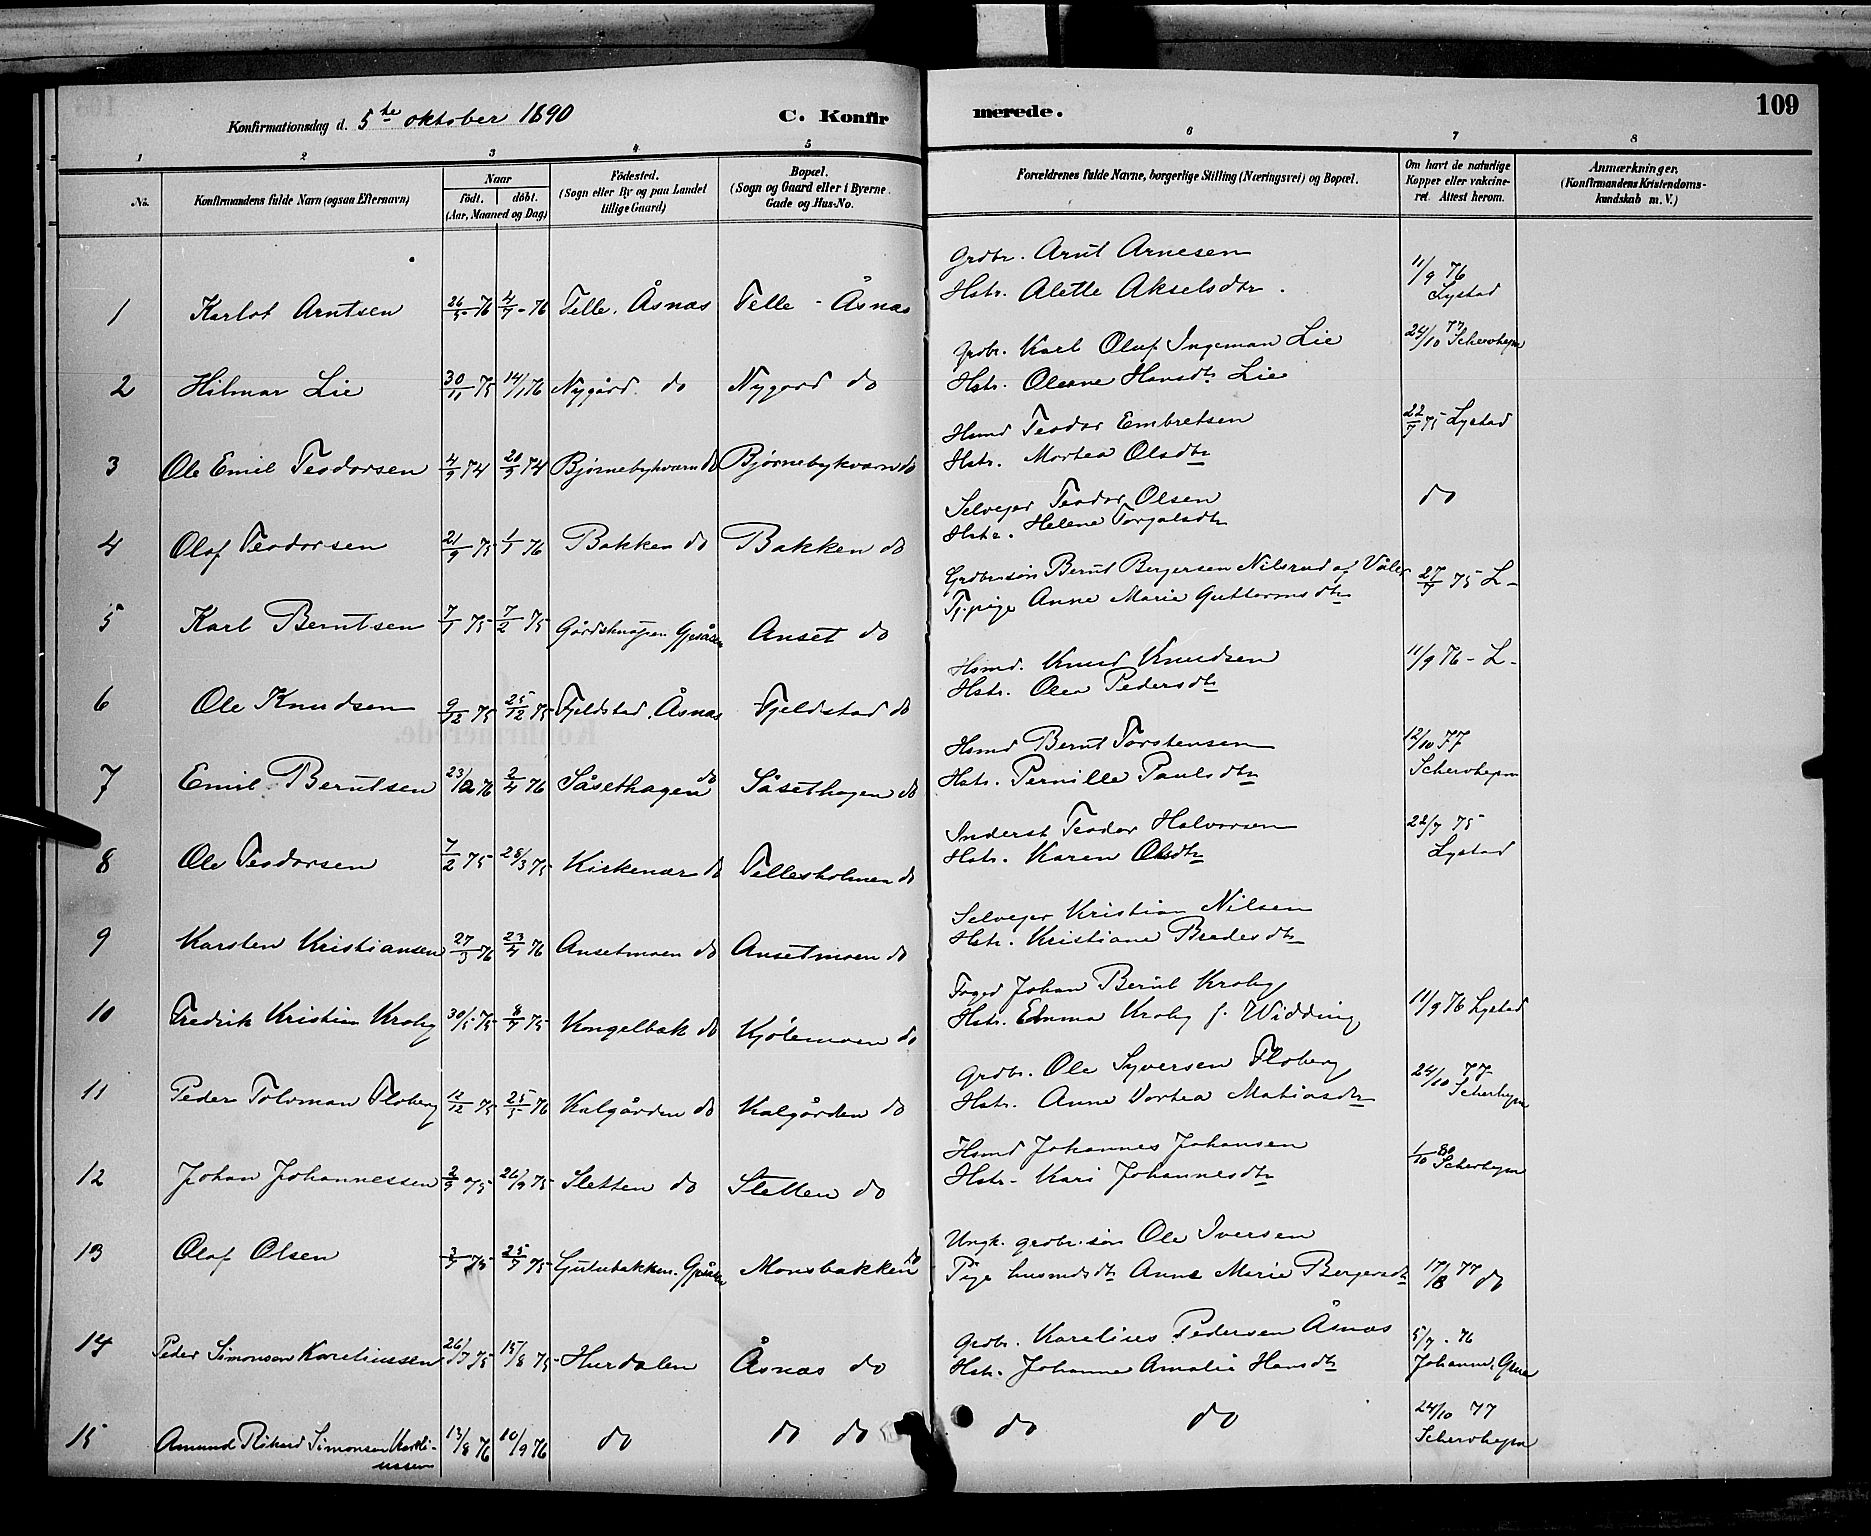 Konfirmationsdag d. 5te oktober 1890
C. Konfir
merede.
109
1 2 3 4 5 6 7 8
No.
Konfirmandens fulde Navn (ogsaa Efternavn)
Naar
født. døbt.
(Aar, Maaned og Dag)
Fødested.
(Sogn eller By og paa Landet
tillige Gaard.)
Bopæl.
(Sogn og Gaard eller i Byerne
Gade og Hus-No.
Forældrenes fulde Navne, borgerlige Stilling (Næringsvei) og Bopæl.
Om havt de naturlige
Kopper eller vakcine-
ret. Attest herom.
Anmærkninger.
(Konfirmandens Kristendoms-
kundskab m. V.)
Grdbr. Arnt Arnesen
1 Karlot Arntsen 26/5-76 4/7-76 Telle. Åsnæs Telle - Åsnæs Hstr. Alette Akselsdtr. 11/9 76 Lystad
Grdbr. Karl Oluf Ingeman Lie
2 Hilmar Lie 30/11 75 14/1 76 Nygård. do Nygaard do Hstr. Oleane Hansdtr Lie 24/10 77 Schevohepn
Hsmd Teodor Embretsen
3 Ole Emil Teodorsen 4/9 74 20/9 74 Bjørnebykværn do Bjørnebykværn do Hstr. Mortea Olsdtr 22/7 75 Lystad
Selvejer Teodor Olsen
4 Olof Teodorsen 21/9 75 1/1 76 Bakken do Bakken do Hstr. Helene Torgalsdtr do
Grdbrsøn Bernt Bergersen Nilsrud af Våler
5 Karl Berntsen 7/1 75 7/2 75 Gårdsknapen Gjesåsen Anset do Tj.pige Anne Marie Guttormsdtr 27/7 75 L-
Hsmd. Knud Knudsen
6 Ole Knudsen 9/12 75 25/12 75 Fjeldstad. Åsnæs Fjeldstad do Hstr. Olea Pedersdtr 11/9 76 - L-
Hsmd Bernt Torstensen
7 Emil Berntsen 23/2 76 2/4 76 Såsethagen do Såsethagen do Hstr. Pernille Paulsdtr 12/10 77 Schevohepn
Inderst Teodor Halvorsen
8 Ole Teodorsen 7/2 75 28/3 75 Kirkenær do Tellesholmen do Hstr. Karen Olsdtr 22/7 75 Lystad
Selvejer Kristian Nilsen
9 Karsten Kristiansen 27/3 76 23/4 76 Ansetmoen do Ansetmoen do Hstr. Kristiane Bredesdtr
Foged Johan Bernt Krohg
10 Fredrik Kristian Krohg 30/5 75 8/7 75 Kongelbak do Kjølemoen do Hstr. Emma Krohg f. Widding 11/9 76 Lystad
Grdbr. Ole Syversen Floberg
11 Peder Tolvman Floberg 12/12 75 25/5 76 Kalgården do Kalgården do Hstr. Anne Dortea Matiasdtr 24/10 77 Scherhepn
Hsmd Johannes Johansen
12 Johan Johannessen 2/9 75 26/9 75 Sletten do Sletten do Hstr. Kari Johannesdtr 1/10 80 Schevhepn
Ungk. grdbr.søn Ole Iversen
13 Olaf Olsen 3/7 75 25/7 75 Gjutubakken. Gjesåsen Monsbakken do Pige husmdsdtr Anne Marie Bergersdtr 17/8 77 do
Grdbr. Karelius Pedersen Åsnæs
14 Peder Simonsen Kareliussen 26/7 75 15/8 75 Hurdalen Åsnæs do Hstr. Johanne Amalie Hansdtr 5/7-76 Johanns. Grue
15 Amund Rikard Simonsen Kareli-
ussen 13/8 76 10/9 76 do do do do do 24/10 77 Schevhepn